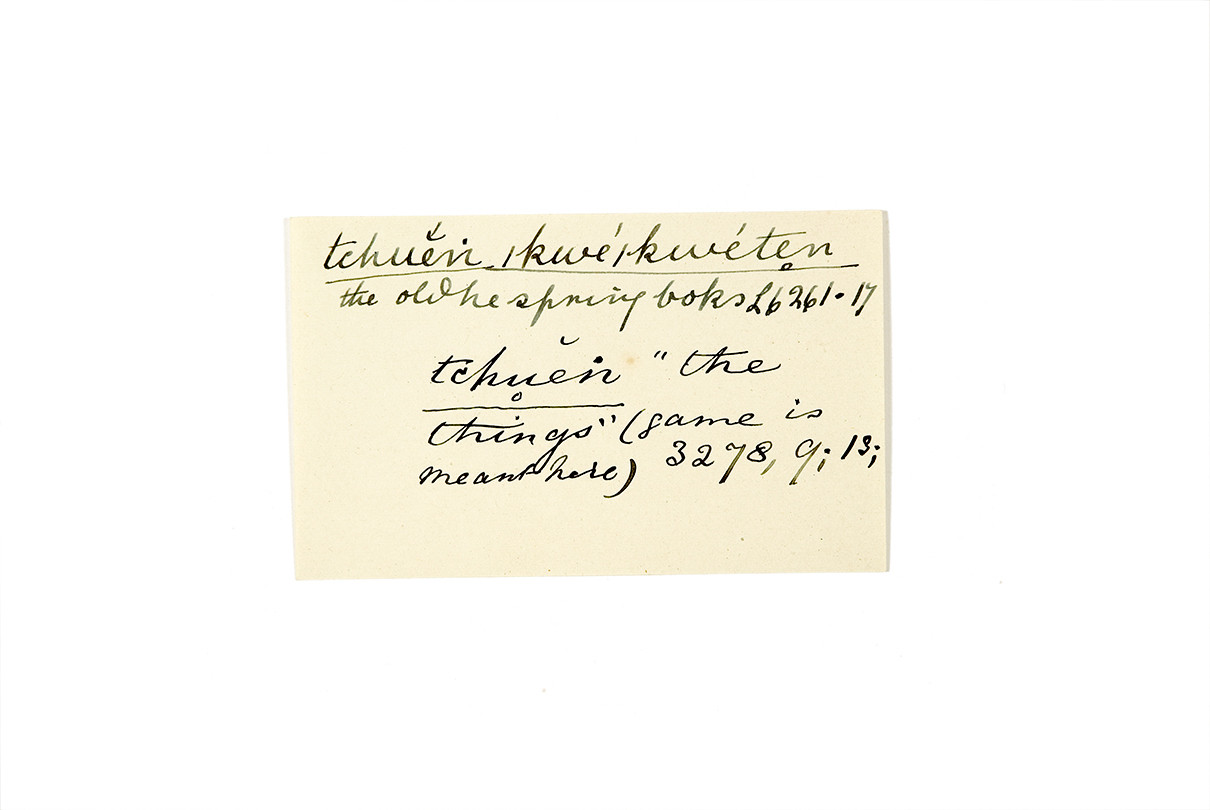 tchuĕn ǀkwé ǀkwéte̥n
the old he spring boks L6 261. 17
tchu̥ĕn " the
things" (game is
meant here) 3278, 9; 13;